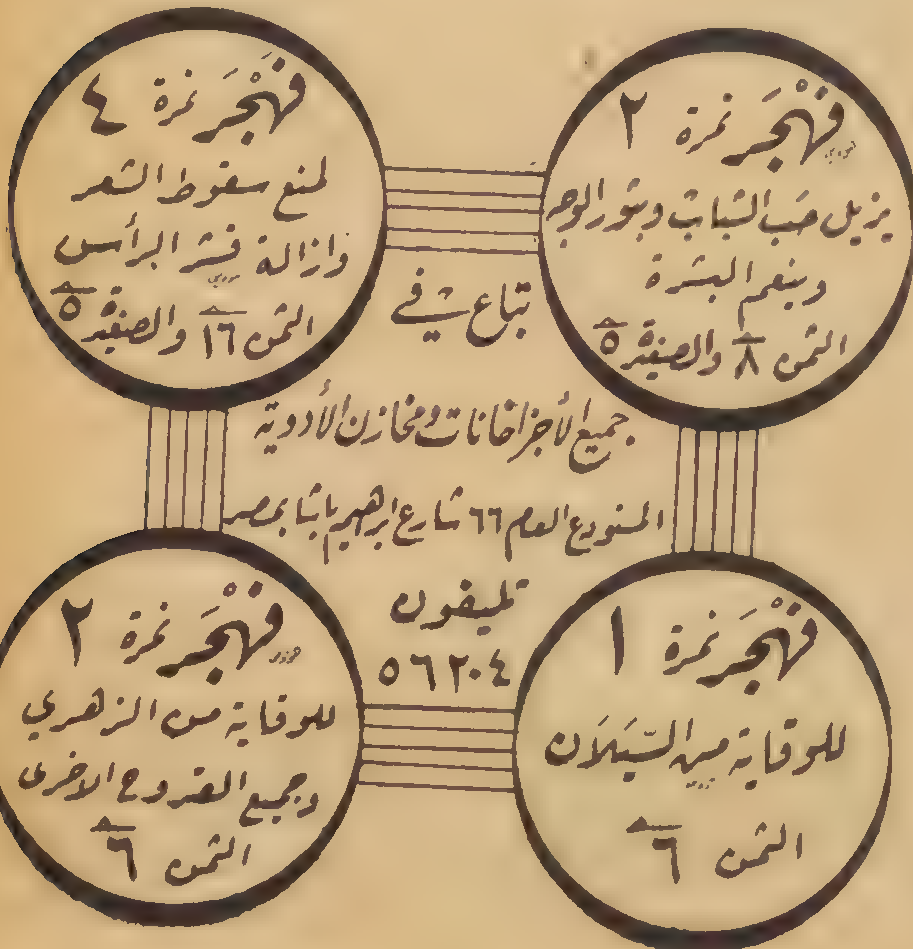 فَهْجَر نمرة ٢
يزيل حب الشباب وبثور الوجه
وينعم البشرة
الثمن ٨ والصغيرة ٥
فَهْجَر نمرة ٤
لمنع سقوط الشعر
وازالة قشر الرأس
الثمن ١٦ والصغيرة ٥
تباع في
جميع الأجزاخانات ومخازن الأدوية
المستودع العام ٦٦ شارع ابراهيم باشا بمصر
تليفون
٥٦٢٠٤
فَهْجَر نمرة ١
للوقاية من السَّيَلَان
الثمن ٦
فَهْجَر نمرة ٢
للوقاية من الزهري
وجميع القروح الاخرى
الثمن ٦